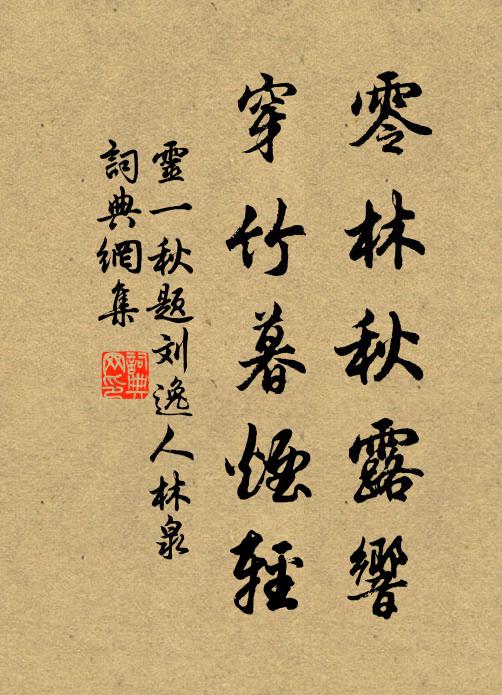 零林秋露響
穿竹暮煙輕
靈一秋題刘逸人林泉
詞典網集
詞典网印